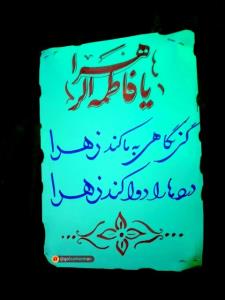 یا فاطمه الزهرا
گر نگاهی به ما کند زهرا
دردها را دوا کند زهرا